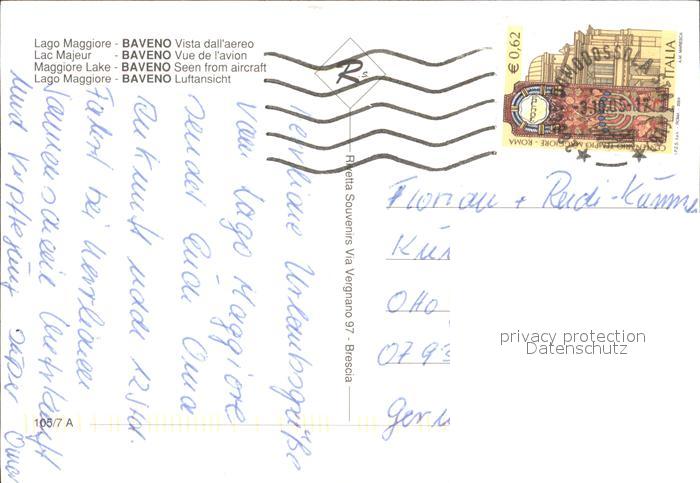 Lago Maggiore - BAVENO Vista dall'aereo
Lac Majeur - BAVENO Vue de l'avion
Maggiore Lake - BAVENO Seen from aircraft
Lago Maggiore - BAVENO Luftansicht
105/7 A
Rivetta Souvenirs Via Vergnano 97 - Brescia
€ 0,62
ITALIA
TEMPIO MAGGIORE - ROMA
DOMODOSSOLA
herzliche Urlaubsgrüße
vom Lago Maggiore
sendet Euch Oma
Ankunft nach 12 Std.
Fahrt bei herrlichem
Sonnenschein Unterkunft
und Verpflegung super Oma
Florian + Rudi-
Otto
privacy protection
Datenschutz